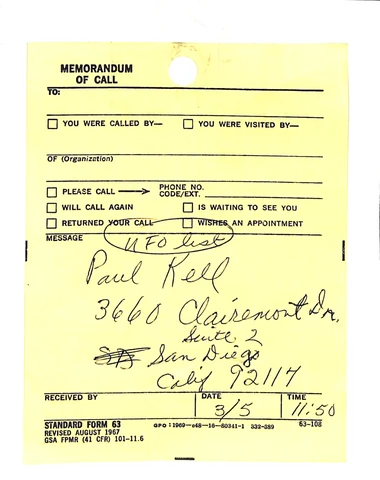 MEMORANDUM
OF CALL
TO:
YOU WERE CALLED BY— YOU WERE VISITED BY—
OF (Organization)
PLEASE CALL → PHONE NO. CODE/EXT.
WILL CALL AGAIN IS WAITING TO SEE YOU
RETURNED YOUR CALL WISHES AN APPOINTMENT
MESSAGE
UFO list
Paul Kell
3660 Clairemont Dr.
Suite 2
San Diego
Calif 92117
RECEIVED BY DATE TIME
3/5 11:50
STANDARD FORM 63 GPO : 1969—o48—16—80341-1 332-389 63-108
REVISED AUGUST 1967
GSA FPMR (41 CFR) 101-11.6